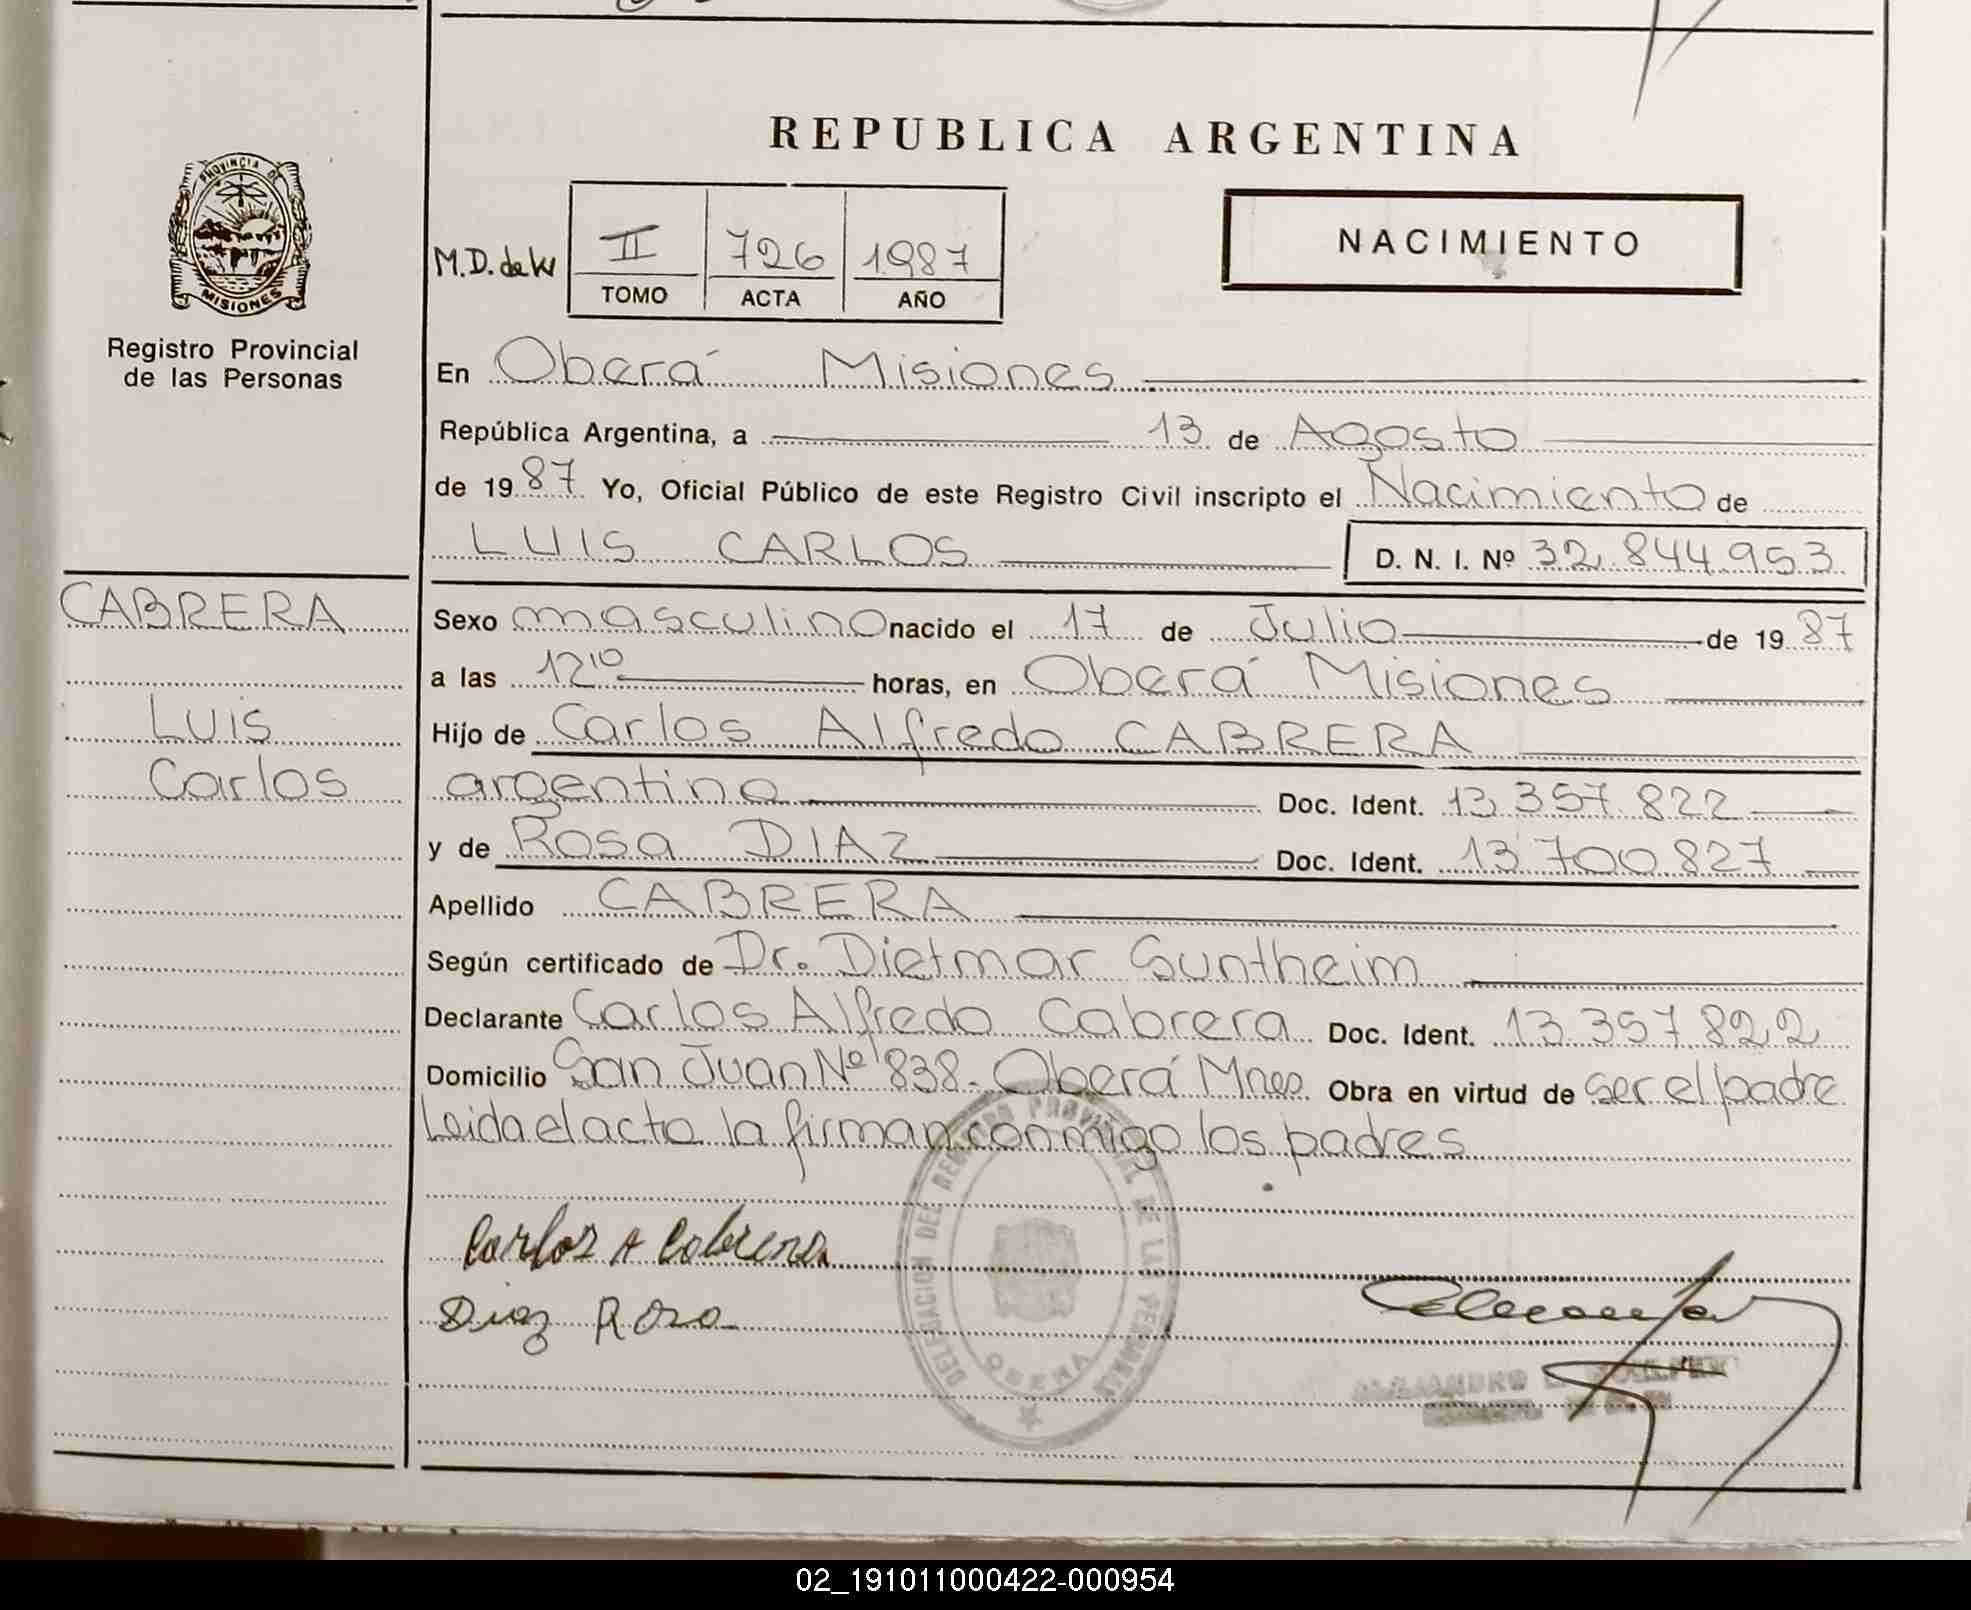 REPUBLICA ARGENTINA
PROVINCIA DE
MISIONES
Registro Provincial
de las Personas
M.D. de
II 726 1987
TOMO ACTA AÑO
NACIMIENTO
En Oberá Misiones
República Argentina, a 13 de Agosto
de 1987 Yo, Oficial Público de este Registro Civil inscripto el Nacimiento de
LUIS CARLOS D. N. I. Nº 32.844.953
CABRERA
Luis
Carlos
Sexo masculino nacido el 17 de Julio de 1987
a las 12¹⁰ horas, en Oberá Misiones
Hijo de Carlos Alfredo CABRERA
argentino Doc. Ident. 13.357.822
y de Rosa DIAZ Doc. Ident. 13.700.827
Apellido CABRERA
Según certificado de Dr. Dietmar Suntheim
Declarante Carlos Alfredo Cabrera Doc. Ident. 13.357.822
Domicilio San Juan Nº 838- Oberá Mnes Obra en virtud de ser el padre
Leida el acta la firman conmigo los padres
Carlos A Cabrera
Diaz Rosa
DELEGACION DEL REGISTRO PROVINCIAL DE LAS PERSONAS
OBERA
ALEJANDRO
02_191011000422-000954